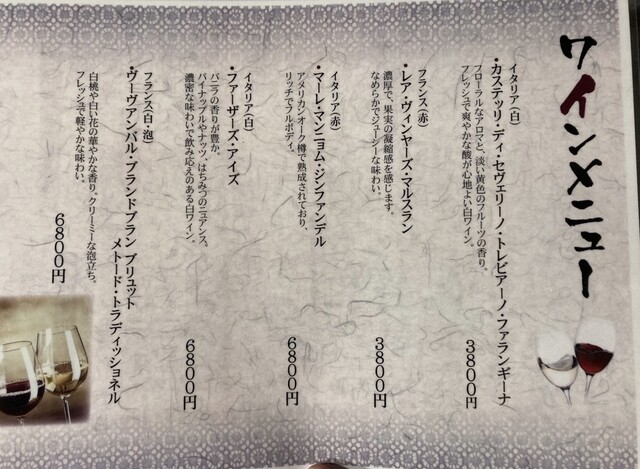 ワインメニュー
イタリア(白)
・カステッリ・ディ・セヴェリーノ・トレビアーノ・ファランギーナ
フローラルなアロマと、淡い黄色のフルーツの香り。
フレッシュで爽やかな酸が心地よい白ワイン。
3800円
フランス(赤)
・レア・ヴィンヤーズ・マルスラン
濃厚で、果実の凝縮感を感じます。
なめらかでジューシーな味わい。
3800円
イタリア(赤)
・マーレ・マンニョム・ジンファンデル
アメリカンオーク樽で熟成されており、
リッチでフルボディ。
6800円
イタリア(白)
・ファーザーズ・アイズ
バニラの香りが豊か。
パイナップルやナッツ、はちみつのニュアンス。
濃密な味わいで飲み応えのある白ワイン。
6800円
フランス(白・泡)
・ヴーヴアンバル・ブランドブラン ブリュット
メトード・トラディッショネル
白桃や白い花の華やかな香り。クリーミーな泡立ち。
フレッシュで軽やかな味わい。
6800円